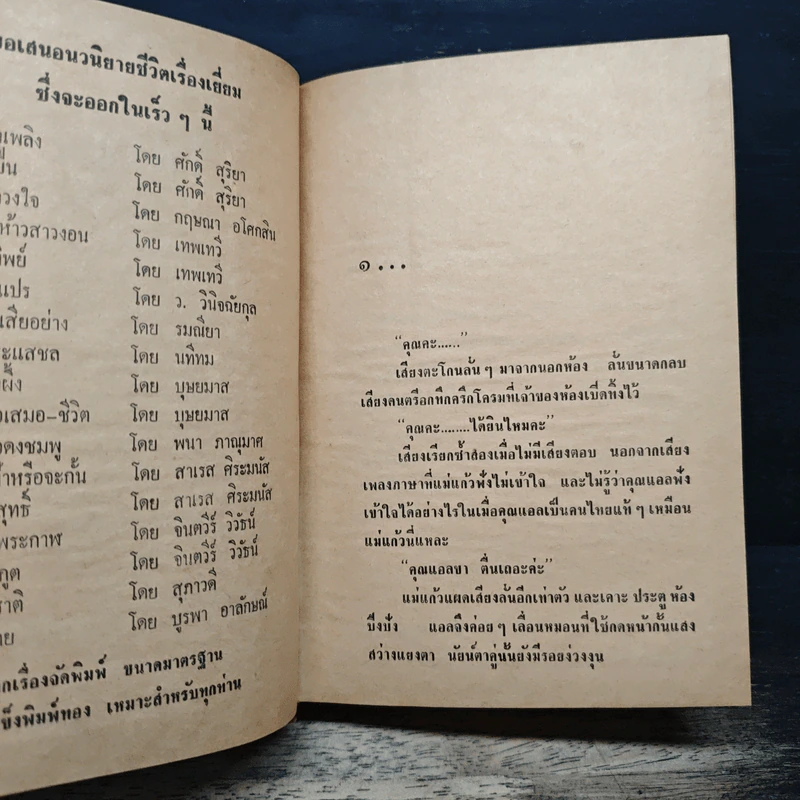 ขอเสนอนวนิยายชีวิตเรื่องเยี่ยม
ซึ่งจะออกในเร็ว ๆ นี้
เพลิง โดย ศักดิ์ สุริยา
โดย ศักดิ์ สุริยา
วงใจ โดย กฤษณา อโศกสิน
ห้าวสาวงอน โดย เทพเทวี
โดย เทพเทวี
แปร โดย ว. วินิจฉัยกุล
เสียอย่าง โดย รมณียา
ะแสชล โดย นทีทม
ผึ้ง โดย บุษยมาส
เสมอ-ชีวิต โดย บุษยมาส
ดงชมพู โดย พนา ภาณุมาศ
หรือจะกั้น โดย สาเรส ศิระมนัส
สุทธิ์ โดย สาเรส ศิระมนัส
พระกาฬ โดย จินตวีร์ วิวัธน์
กูต โดย จินตวีร์ วิวัธน์
ชาติ โดย สุภาวดี
าย โดย บูรพา อาลักษณ์
กเรื่องจัดพิมพ์ ขนาดมาตรฐาน
ข็งพิมพ์ทอง เหมาะสำหรับทุกท่าน
๑ ...
“คุณคะ......”
เสียงตะโกนลั่น ๆ มาจากนอกห้อง ลั่นขนาดกลบ
เสียงดนตรีอึกทึกครึกโครมที่เจ้าของห้องเปิดทิ้งไว้
“คุณคะ........ได้ยินไหมคะ”
เสียงเรียกซ้ำสองเมื่อไม่มีเสียงตอบ นอกจากเสียง
เพลงภาษาที่แม่แก้วฟังไม่เข้าใจ และไม่รู้ว่าคุณแอลฟัง
เข้าใจได้อย่างไรในเมื่อคุณแอลเป็นคนไทยแท้ ๆ เหมือน
แม่แก้วนี่แหละ
“คุณแอลขา ตื่นเถอะค่ะ”
แม่แก้วแผดเสียงลั่นอีกเท่าตัว และเคาะ ประตู ห้อง
ปังปัง แอลจึงค่อย ๆ เลื่อนหมอนที่ใช้กดหน้ากั้นแสง
สว่างแยงตา นัยน์ตาคู่นั้นยังมีรอยง่วงงุน